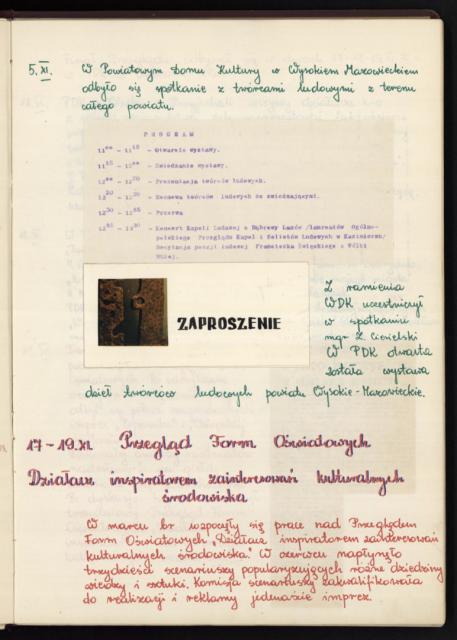 5.XI. W Powiatowym Domu Kultury w Wysokiem Mazowieckiem
odbyło się spotkanie z twórcami ludowymi z terenu
całego powiatu.
PROGRAM
11⁰⁰ – 11¹⁵ – Otwarcie wystawy.
11¹⁵ – 12⁰⁰ – Zwiedzanie wystawy.
– Prezentacja twórców ludowych.
– Rozmowa twórców ludowych ze zwiedzającymi.
– Przerwa
– Koncert Kapeli Ludowej z Dąbrowy Łazów /laureatów Ogólno-
polskiego Przeglądu Kapel i Solistów Ludowych w Kazimierzu/
Recytacja poezji ludowej Franciszka Święckiego z Wólki
ZAPROSZENIE
Z ramienia
WDK uczestniczył
w spotkaniu
mgr Z. Ciesielski
W PDK otwarta
została wystawa
dzieł twórców ludowych powiatu Wysokie-Mazowieckie.
17-19.XI Przegląd Form Oświatowych
Działacz inspiratorem zainteresowań kulturalnych
środowiska
W marcu br rozpoczęły się prace nad Przeglądem
Form Oświatowych „Działacz inspiratorem zainteresowań
kulturalnych środowiska." W czerwcu napłynęło
trzydzieści scenariuszy popularyzujących różne dziedziny
wiedzy i sztuki. Komisja scenariuszy zakwalifikowała
do realizacji i reklamy jedenaście imprez.